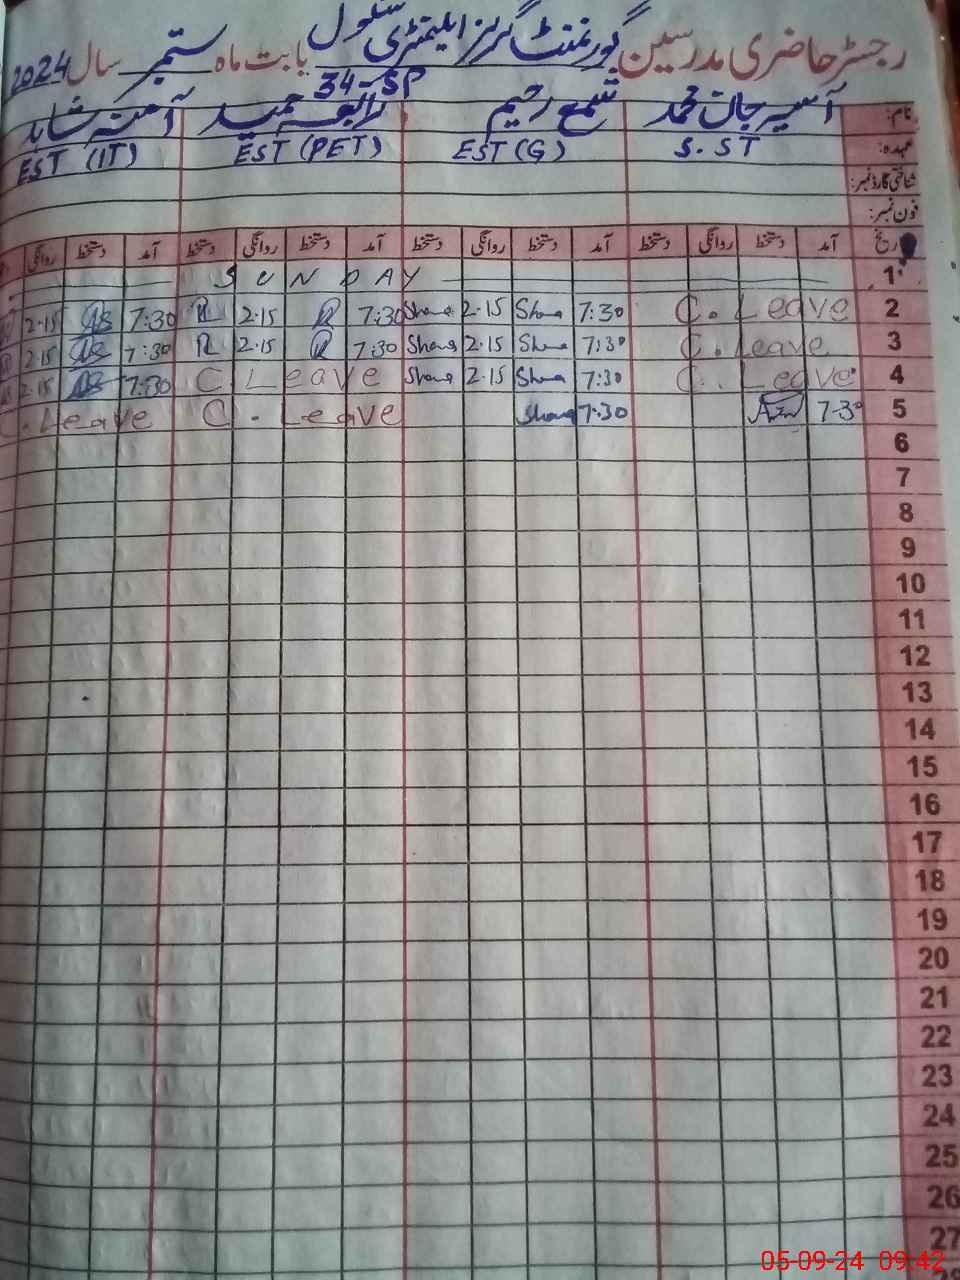 رجسٹر حاضری مدرسین گورنمنٹ گرلز ایلیمنٹری سکول 34-SP بابت ماہ ستمبر سال 2024
نام: آسیہ جان محمد شمع رحیم رابعہ حمید آمنہ شاہد
عہدہ: S.ST EST (G) EST (PET) EST (IT)
شناختی کارڈ نمبر:
فون نمبر:
تاریخ آمد دستخط روانگی دستخط آمد دستخط روانگی دستخط آمد دستخط روانگی دستخط آمد دستخط روانگی
1 SUNDAY
2 C. Leave 7:30 Shama 2.15 Shama 7:30 R 2.15 R 7:30 AS 2.15
3 C. Leave 7:30 Shama 2.15 Shama 7:30 R 2.15 R 7:30 AS 2.15
4 C. Leave 7:30 Shama 2.15 Shama C Leave 7:30 AS 2.15
5 7:30 7:30 Shama C. Leave C. Leave
6
7
8
9
10
11
12
13
14
15
16
17
18
19
20
21
22
23
24
25
26
27
28
05-09-24 09:42